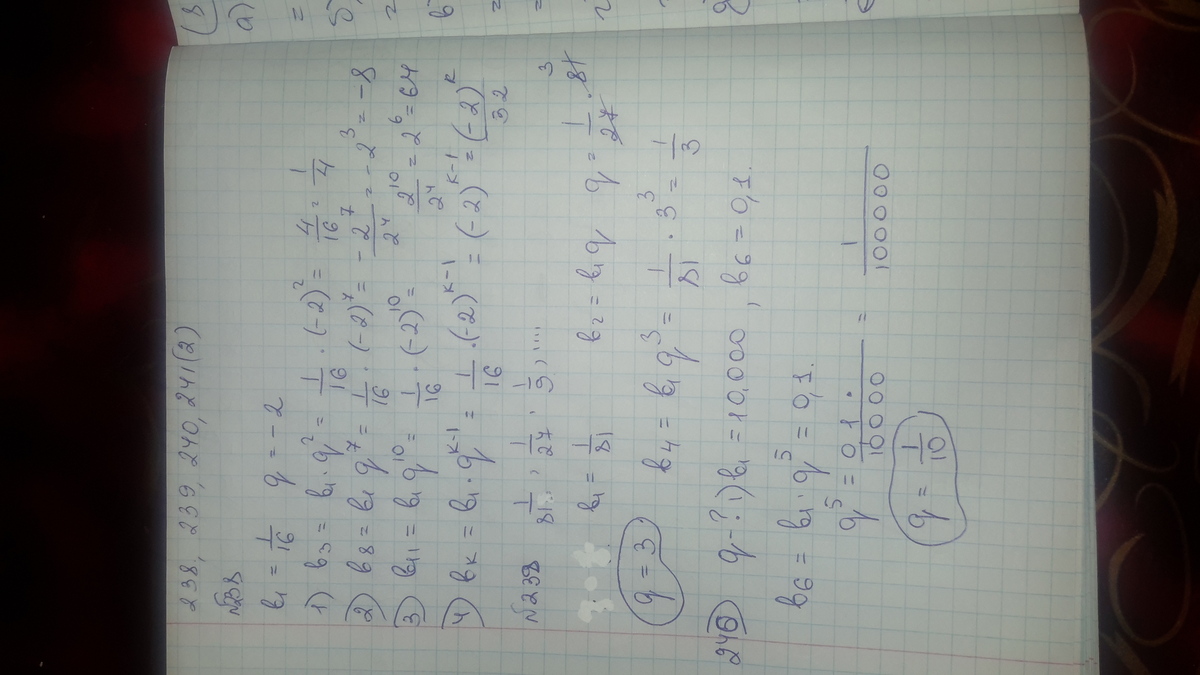 238, 239, 240, 241(2)
№238
b₁ = 1/16   q = -2
1) b₃ = b₁ · q² = 1/16 · (-2)² = 4/16 = 1/4
2) b₈ = b₁ q⁷ = 1/16 · (-2)⁷ = - 2⁷/2⁴ = -2³ = -8
3) b₁₁ = b₁ q¹⁰ = 1/16 · (-2)¹⁰ = 2¹⁰/2⁴ = 2⁶ = 64
4) bₖ = b₁ · qᵏ⁻¹ = 1/16 · (-2)ᵏ⁻¹ = (-2)ᵏ⁻¹ = (-2)ᵏ/32
№239   1/81; 1/27; 1/9; ....
b₁ = 1/81   b₂ = b₁ q   q = 1/27 · 81 3
q = 3.   b₄ = b₁ q³ = 1/81 · 3³ = 1/3
240)   q - ? 1) b₁ = 10.000, b₆ = 0,1.
b₆ = b₁ · q⁵ = 0,1.
q⁵ = 0,1/10000 = 1/100000
q = 1/10
(3
а)
=
б)
=
в)
=